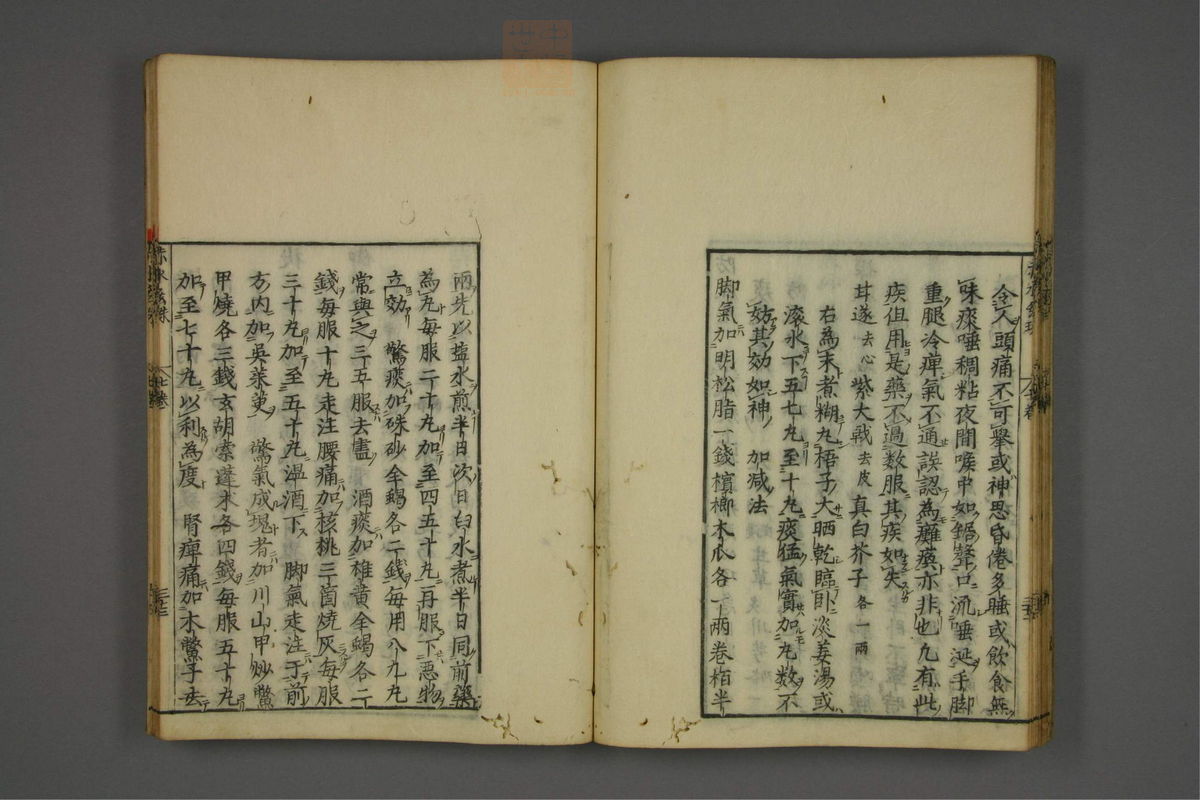 令人頭痛不可舉或神思昏倦多睡或飲食無
味痰唾稠粘夜間喉中如鋸聲口流唾涎手脚
重腿冷痺氣不通誤認為癱瘓亦非也凡有此
疾但用是藥不過数服其疾如失
甘遂去心 紫大戟去皮 真白芥子各一兩
右為末煮糊丸梧子大晒乾臨卧淡姜湯或
滚水下五七丸至十丸痰猛氣實加丸数不
妨其効如神 加减法
脚氣加明松脂一錢檳榔木瓜各一兩卷栢半
兩先以塩水煎半日次日白水煮半日同前藥
為丸每服二十丸加至四五十丸再服下惡物
立効 驚痰加硃砂全蝎各二錢每用八九丸
常與之三五服去盡 酒痰加雄黄全蝎各二
錢每服十丸走注腰痛加核桃三箇燒灰每服
三十丸加至五十丸温酒下 脚氣走注于前
方内加吳茱萸 驚氣成塊者加川山甲炒鱉
甲燒各三錢玄胡索蓬术各四錢每服五十丸
加至七十丸以利為度 腎痺痛加木鱉子去
赤水玄珠 七卷